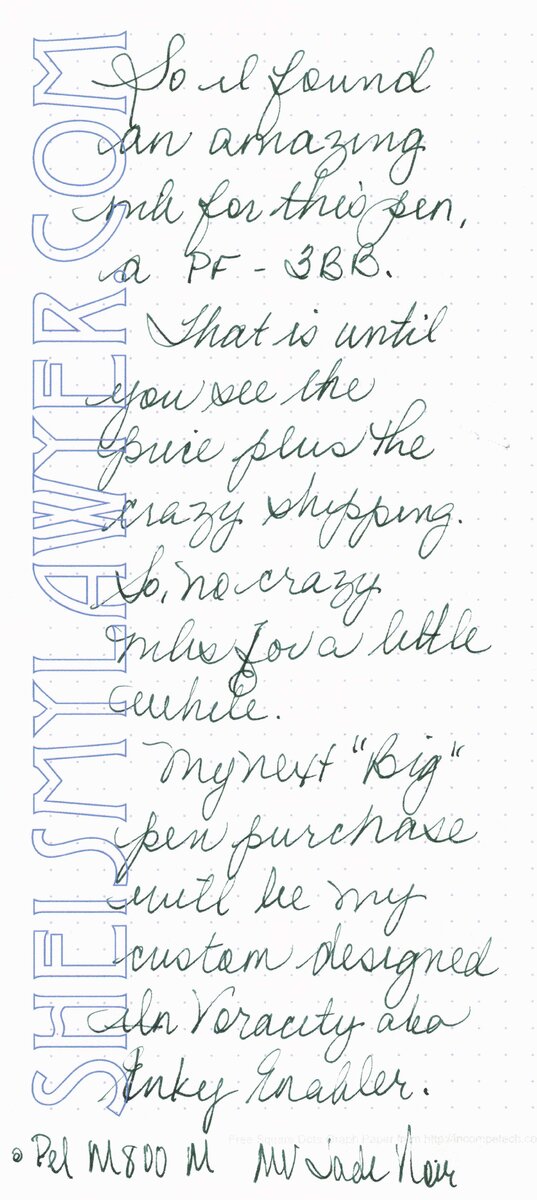 SHEISMYLAWYER.COM
So I found
an amazing
ink for this pen,
a PF - 3BB.
That is until
you see the
price plus the
crazy shipping.
So, no crazy
inks for a little
while.
My next "Big"
pen purchase
will be my
custom designed
In Voracity aka
Inky Enabler.
Free Square Dots Graph Paper from http://incompetech.co
Pel M800 M MV Jade Noir